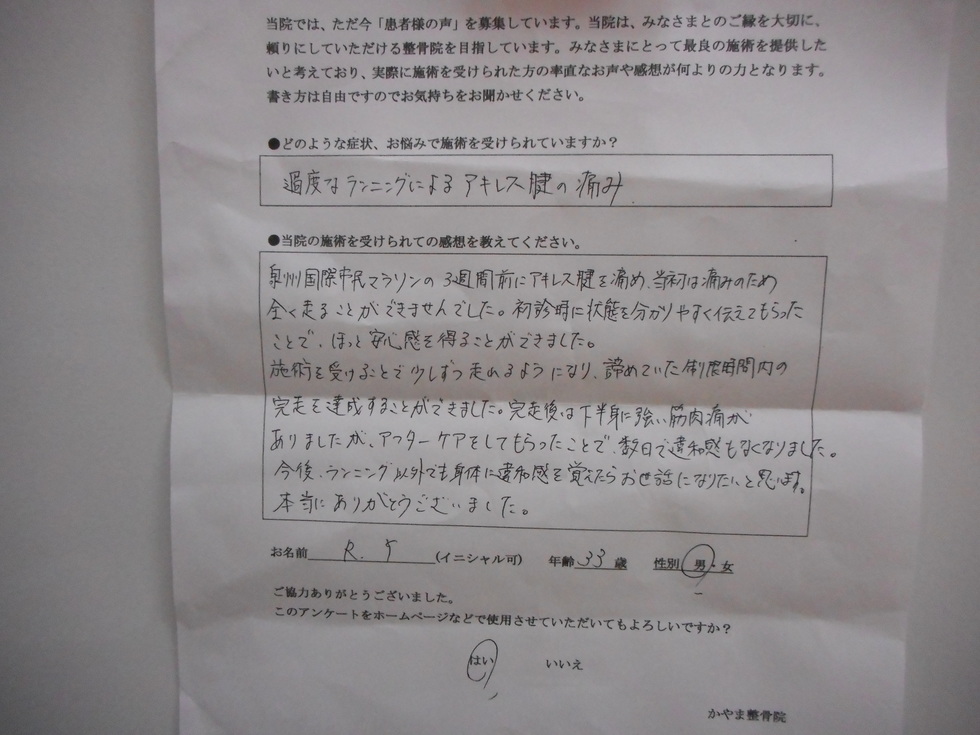 当院では、ただ今「患者様の声」を募集しています。当院は、みなさまとのご縁を大切に、
頼りにしていただける整骨院を目指しています。みなさまにとって最良の施術を提供した
いと考えており、実際に施術を受けられた方の率直なお声や感想が何よりの力となります。
書き方は自由ですのでお気持ちをお聞かせください。
●どのような症状、お悩みで施術を受けられていますか？
過度なランニングによるアキレス腱の痛み.
●当院の施術を受けられての感想を教えてください。
泉州国際市民マラソンの3週間前にアキレス腱を痛め、当初は痛みのため
全く走ることができませんでした。初診時に状態を分かりやすく伝えてもらった
ことで、ほっと安心感を得ることができました。
施術を受けることで少しずつ走れるようになり、諦めていた制限時間内の
完走を達成することができました。完走後は下半身に強い筋肉痛が
ありましたが、アフターケアをしてもらったことで、数日で違和感もなくなりました。
今後、ランニング以外でも身体に違和感を覚えたらお世話になりたいと思います。
本当にありがとうございました。
お名前 R. (イニシャル可) 年齢 33 歳 性別 男・女
ご協力ありがとうございました。
このアンケートをホームページなどで使用させていただいてもよろしいですか？
はい いいえ
かやま整骨院